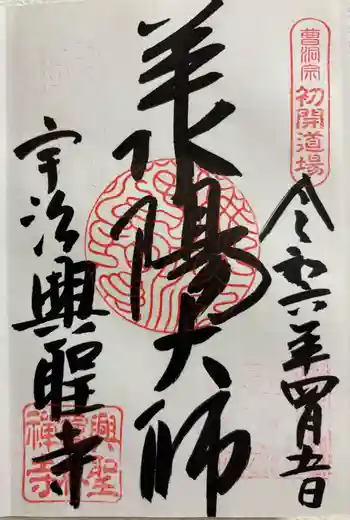 曹洞宗
初開道場
令和六年四月五日
承陽大師
宇治興聖寺
興聖
禪寺